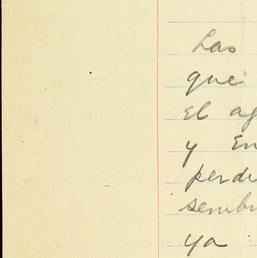 Las
que
el ag
y En
perdi
sembr
ya